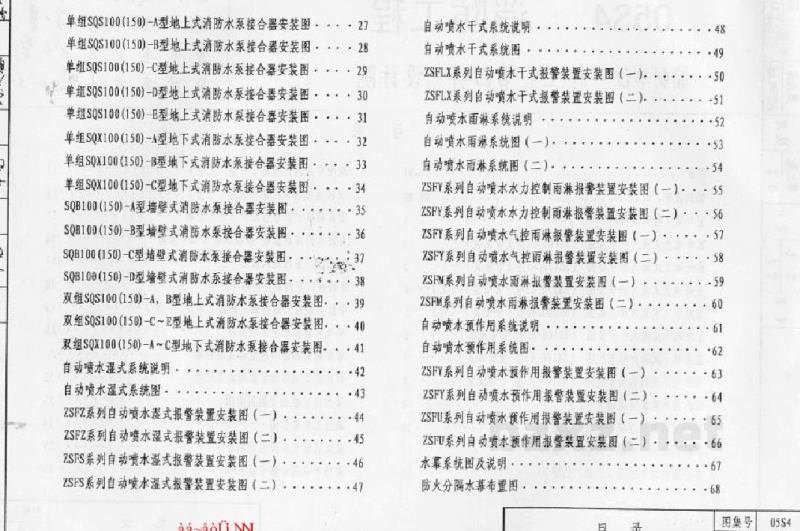 单组SQS100(150)-A型地上式消防水泵接合器安装图····27
单组SQS100(150)-B型地上式消防水泵接合器安装图····28
单组SQS100(150)-C型地上式消防水泵接合器安装图····29
单组SQS100(150)-D型地上式消防水泵接合器安装图····30
单组SQS100(150)-E型地上式消防水泵接合器安装图····31
单组SQX100(150)-A型地下式消防水泵接合器安装图····32
单组SQX100(150)-B型地下式消防水泵接合器安装图····33
单组SQX100(150)-C型地下式消防水泵接合器安装图····34
SQB100(150)-A型墙壁式消防水泵接合器安装图·······35
SQB100(150)-B型墙壁式消防水泵接合器安装图·······36
SQB100(150)-C型墙壁式消防水泵接合器安装图·······37
SQB100(150)-D型墙壁式消防水泵接合器安装图·······38
双组SQS100(150)-A，B型地上式消防水泵接合器安装图···39
双组SQS100(150)-C～E型地上式消防水泵接合器安装图···40
双组SQX100(150)-A～C型地下式消防水泵接合器安装图···41
自动喷水湿式系统说明··················42
自动喷水湿式系统图···················43
ZSFZ系列自动喷水湿式报警装置安装图(一)·········44
ZSFZ系列自动喷水湿式报警装置安装图(二)·········45
ZSFS系列自动喷水湿式报警装置安装图(一)·········46
ZSFS系列自动喷水湿式报警装置安装图(二)·········47
自动喷水干式系统说明··················48
自动喷水干式系统图···················49
ZSFLX系列自动喷水干式报警装置安装图(一)········50
ZSFLX系列自动喷水干式报警装置安装图(二)········51
自动喷水雨淋系统说明··················52
自动喷水雨淋系统图(一)················53
自动喷水雨淋系统图(二)················54
ZSFY系列自动喷水水力控制雨淋报警装置安装图(一)····55
ZSFY系列自动喷水水力控制雨淋报警装置安装图(二)····56
ZSFY系列自动喷水气控雨淋报警装置安装图(一)······57
ZSFY系列自动喷水气控雨淋报警装置安装图(二)······58
ZSFM系列自动喷水雨淋报警装置安装图(一)········59
ZSFM系列自动喷水雨淋报警装置安装图(二)········60
自动喷水预作用系统说明·················61
自动喷水预作用系统图··················62
ZSFY系列自动喷水预作用报警装置安装图(一)·······63
ZSFY系列自动喷水预作用报警装置安装图(二)·······64
ZSFU系列自动喷水预作用报警装置安装图(一)·······65
ZSFU系列自动喷水预作用报警装置安装图(二)·······66
水幕系统图及说明····················67
防火分隔水幕布置图···················68
目 录
图集号 05S4